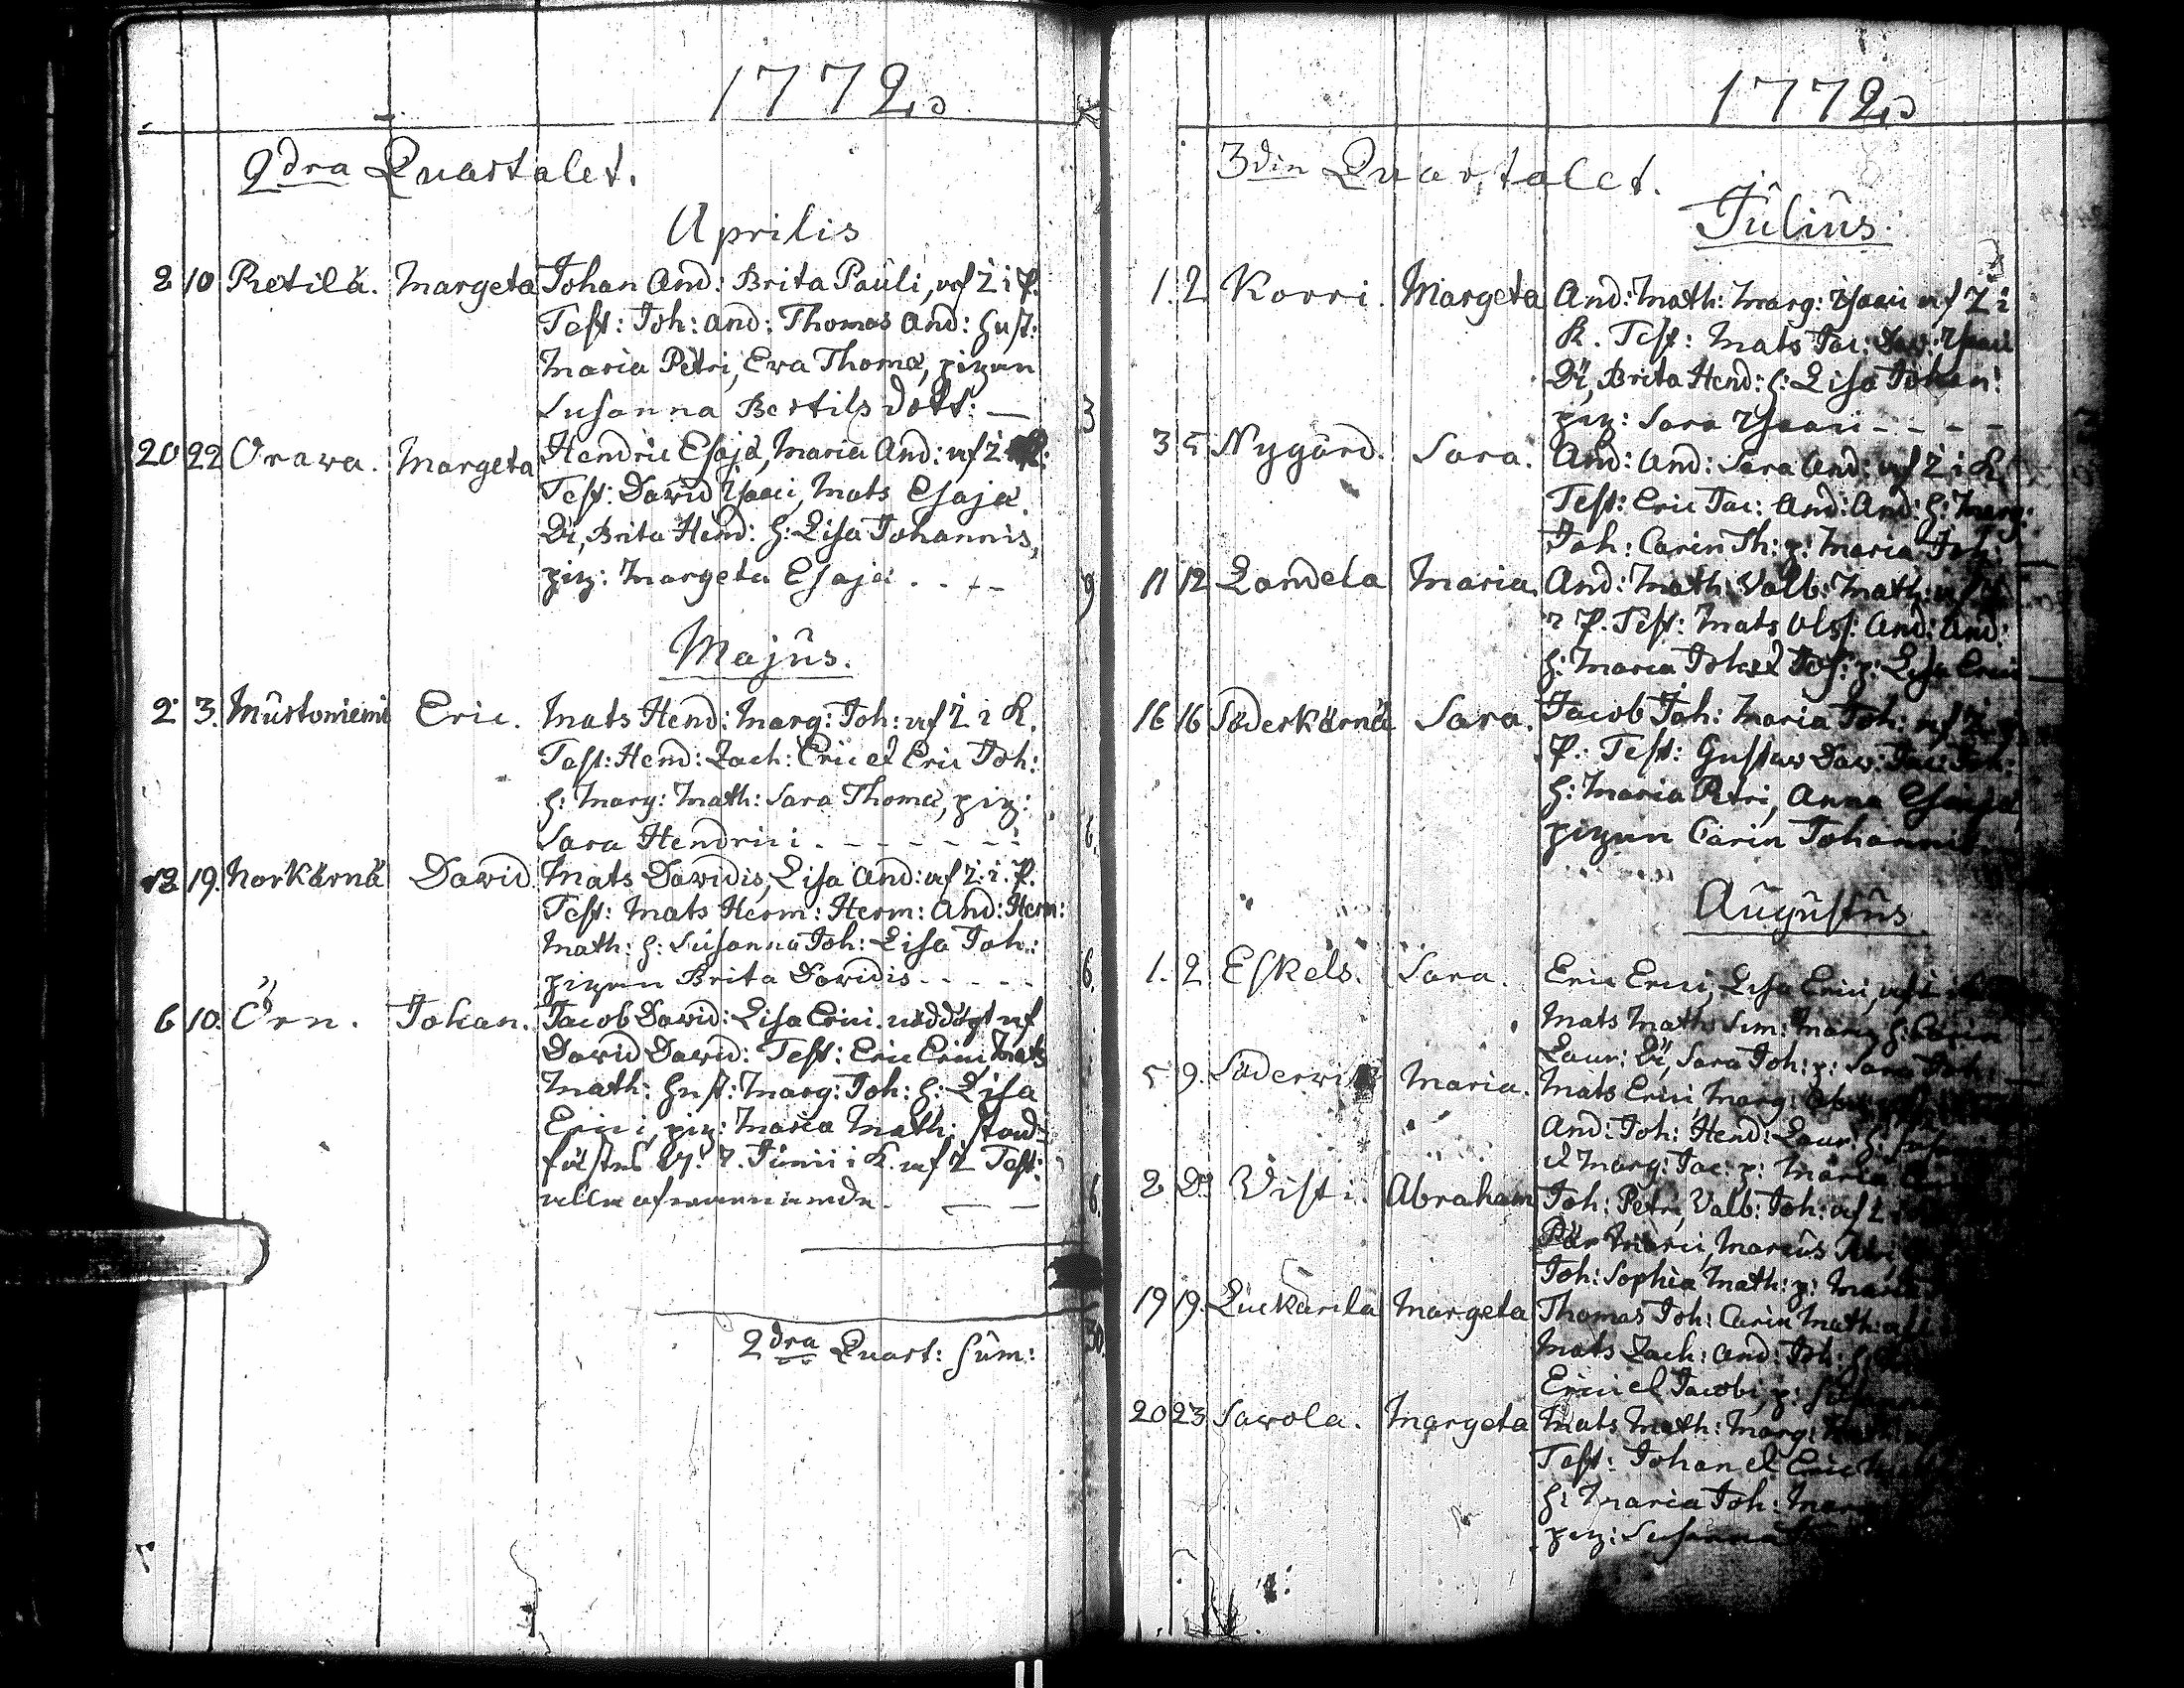 1772.
2dra Quartalet.
Aprilis
2 10 Retilä. Margeta Johan And: Brita Pauli, af Z i P.
Test: Joh: And: Thomas And: Hust:
Maria Petri, Eva Thomæ, pigan
Susanna Bertils dott: —
3
20 22 Orawa. Margeta Hendric Esajæ, Maria And: af Z i
Test: David Isaaci, Mats Esajæ.
Di, Brita Hend: H: Lisa Johannis,
pig: Margeta Esajæ
9
Majus.
2 3. Mustoniemi Eric. Mats Hend: Marg: Joh: af Z i K.
Test: Hend: Zach: Eric et Eric Joh:
H: Marg: Math: Sara Thomæ, pig:
Sara Hendrici
6.
19. Norkärnä David. Mats Davidis, Lisa And: af Z. i. P.
Test: Mats Herm: Herm: And: Herm:
Math: H: Susanna Joh: Lisa Joh:
pigan Brita Davidis
6.
6 10. Örn. Johan. Jacob David: Lisa Erici. nöddögt af
David David: Test: Eric Erici Mats
Math: Hust: Marg: Joh: H: Lisa
Erici, pig: Maria Math: stad=
fästes d. 7. Junii i K. af Z Test:
alla ofvannämde.
6.
30.
2dra Quart: Sum:
1772.
3din Quartalet.
Julius.
1. 2 Korri. Margeta And: Math: Marg: Isaaci af Z i
K. Test: Mats Jac: Dav: Isaaci
Di, Brita Hend: H: Lisa Johan:
pig: Sara Isaaci
3 5 Nygård. Sara. And: And: Sara And: af Z i K.
Test: Eric Jac: And: And: H: Marg:
Joh: Carin Th: p: Maria Joh:
11 12 Landela Maria. And: Math: Valb: Math: af
i P. Test: Mats Olss: And: And:
H: Maria Joh: et p: Lisa Erici
16 16 Söderkärnä Sara. Jacob Joh: Maria Joh: af Z i
P. Test: Gustav Dav: Jac: Joh:
H: Maria Petri, Anna Esajæ
pigan Carin Johannis
Augustus
1. 2 Eskels. Sara. Eric Erici, Lisa Erici, af
Mats Math: Sim: Marg: H: Carin
Laur: Di, Sara Joh: p: Sara Joh:
5 9. Maria. Mats Erici, Marg:
And: Joh: Hend: Laur: H:
et Marg: Jac: p: Maria
2 Do Wisti. Abraham Joh: Petri, Valb: Joh: af Z
Pär Marci, Marcus
Joh: Sophia Math: p: Maria
19 19. Luckarila Margeta Thomas Joh: Carin Math:
Mats Zach: And: Joh:
Erici et Jacobi, p: Susanna
20 23 Savola. Margeta Mats Math: Marg:
Test: Johan et Eric
H: Maria Joh:
pig: Susanna